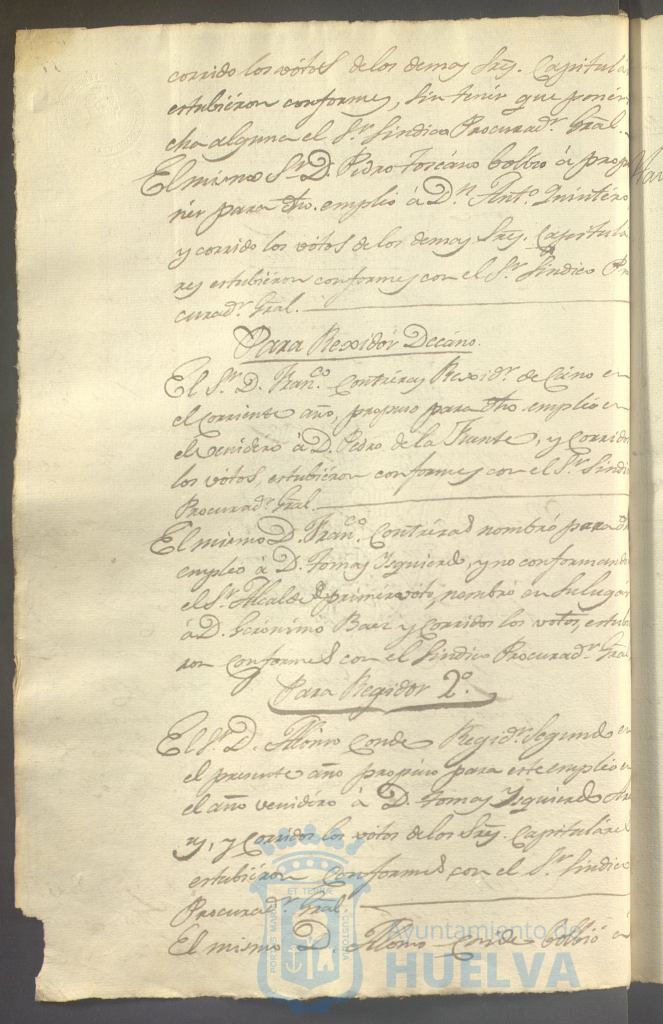 corrido los vótos de los demas Sres. Capitula
estubiéron conformes, sin tenér que ponér
cha alguna el Sr. Síndico Procurador. Gral.
El mismo Sr. D. Pedro Toscáno bolbió á propo
nér para dho. empléo á Dn. Anto. Quintéro
y corrido los vótos de los demas Sres. Capitula
res estubiéron conformes con el Sr. Síndico Pro
curadr. Gral.
Para Rexidór Decáno.
El Sr. D. Franco. Contréras Rexidr. de Cáno en
el corriente año, propuso para dho. empléo en
el venidero á D. Pedro de la Fuente, y corridos
los vótos, estubiéron conformes con el Sr. Síndi
Procuradr. Gral.
El mismo D. Franco. Contréras nombró para dh
empléo á D. Tomas Isquierdo, y no conformando
el Sr. Alcalde de primér voto, nombró en su lugár
á D. Gerónimo Baez y corridos los votos, estubie
ron conformes con el Síndico Procuradr. Gral
Para Regidor 2o.
El Sr. D. Alonso Conde Regidr. Segundo en
el presente año propuso para este empléo en
el año venidéro á D. Tomas Isquierdo
y corridos los vótos de los Sres. Capituláres
estubiéron conformes con el Sr. Síndico
Procuradr. Gral
El mismo D. Alonso Conde bolbió á
PORTUS MARIS ET TERRAE CUSTODIA
Ayuntamiento de
HUELVA